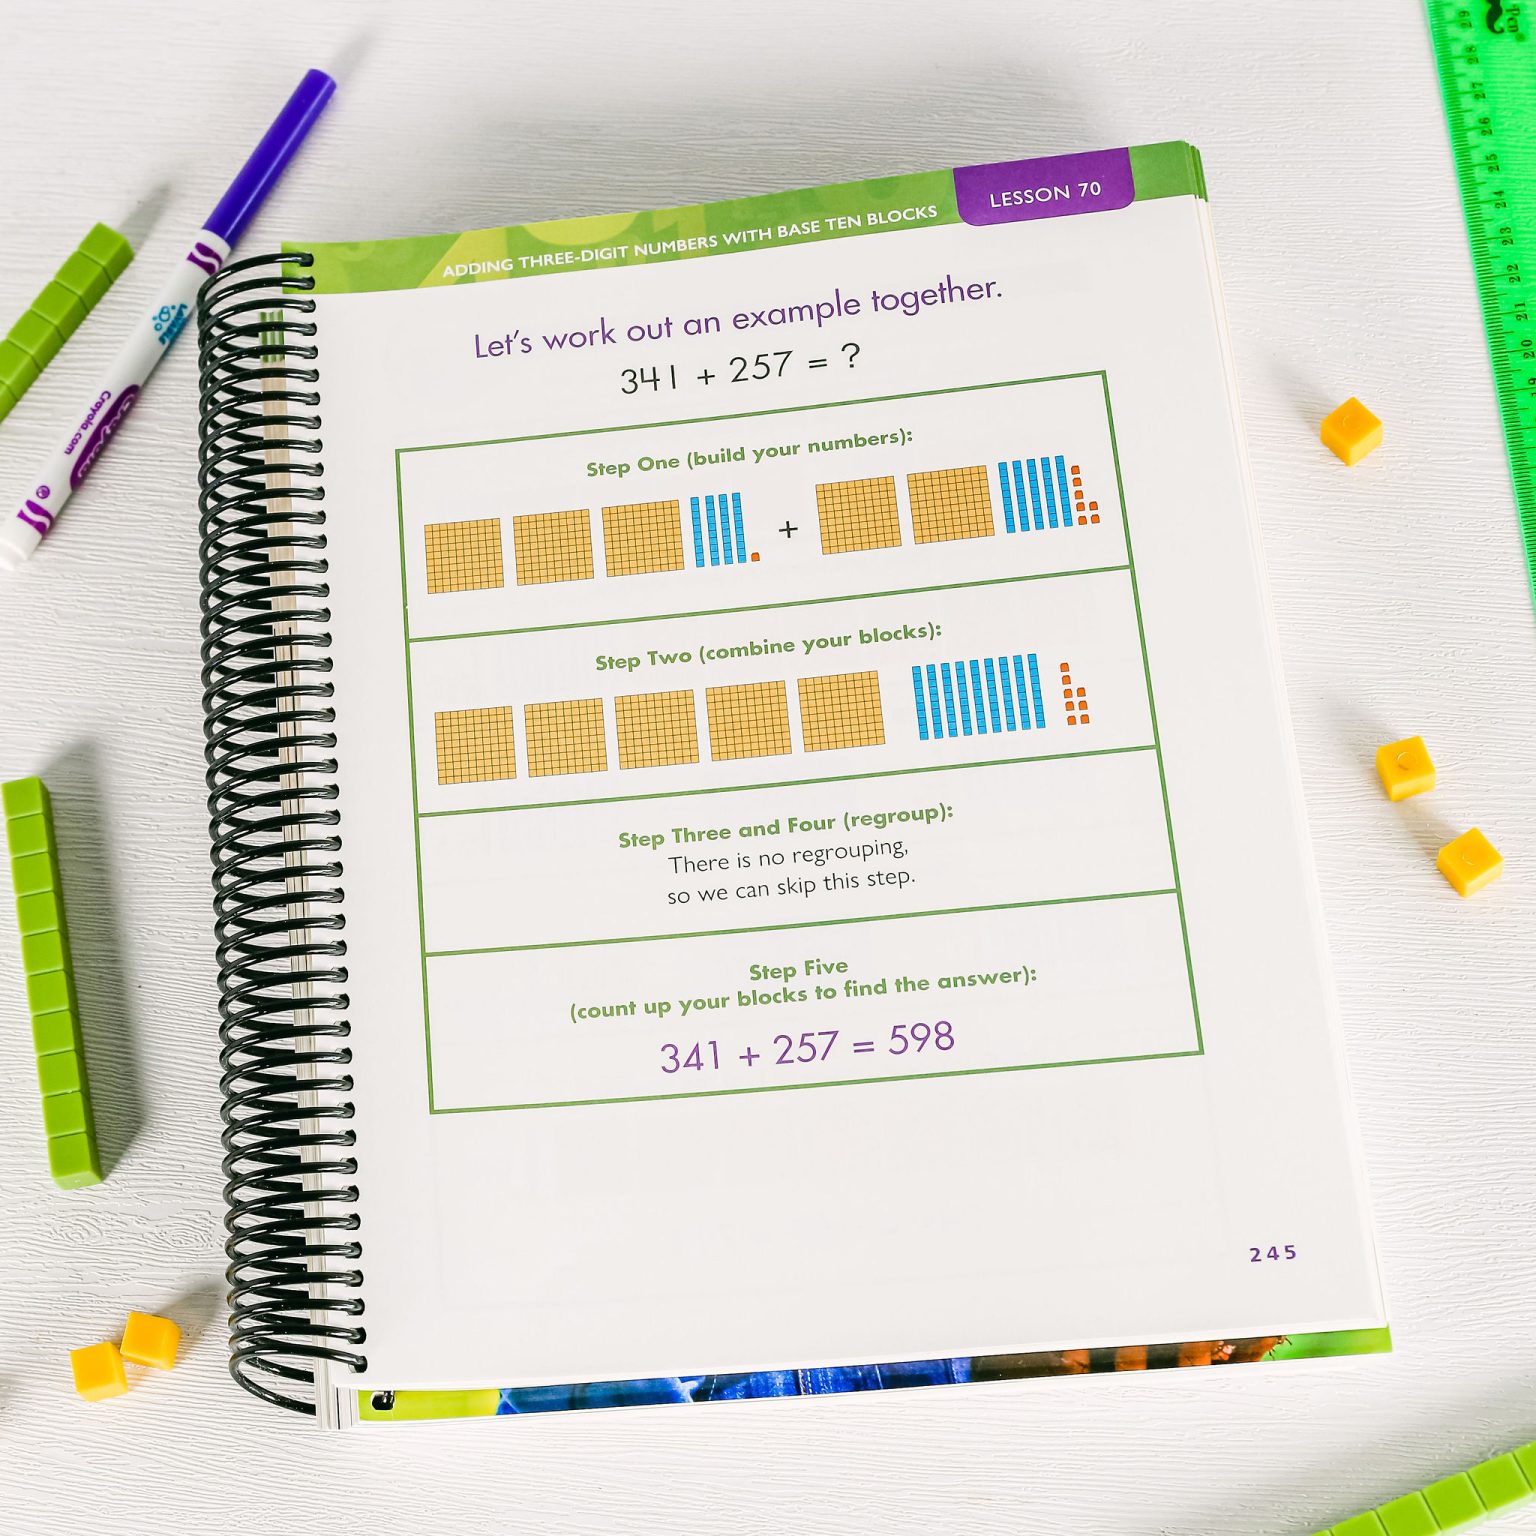 ADDING THREE-DIGIT NUMBERS WITH BASE TEN BLOCKS
LESSON 70
Let's work out an example together.
341 + 257 = ?
Step One (build your numbers):
+
Step Two (combine your blocks):
Step Three and Four (regroup):
There is no regrouping,
so we can skip this step.
Step Five
(count up your blocks to find the answer):
341 + 257 = 598
245
Crayola.com
Crayola
29
28
27
26
25
24
23
22
21
20
19